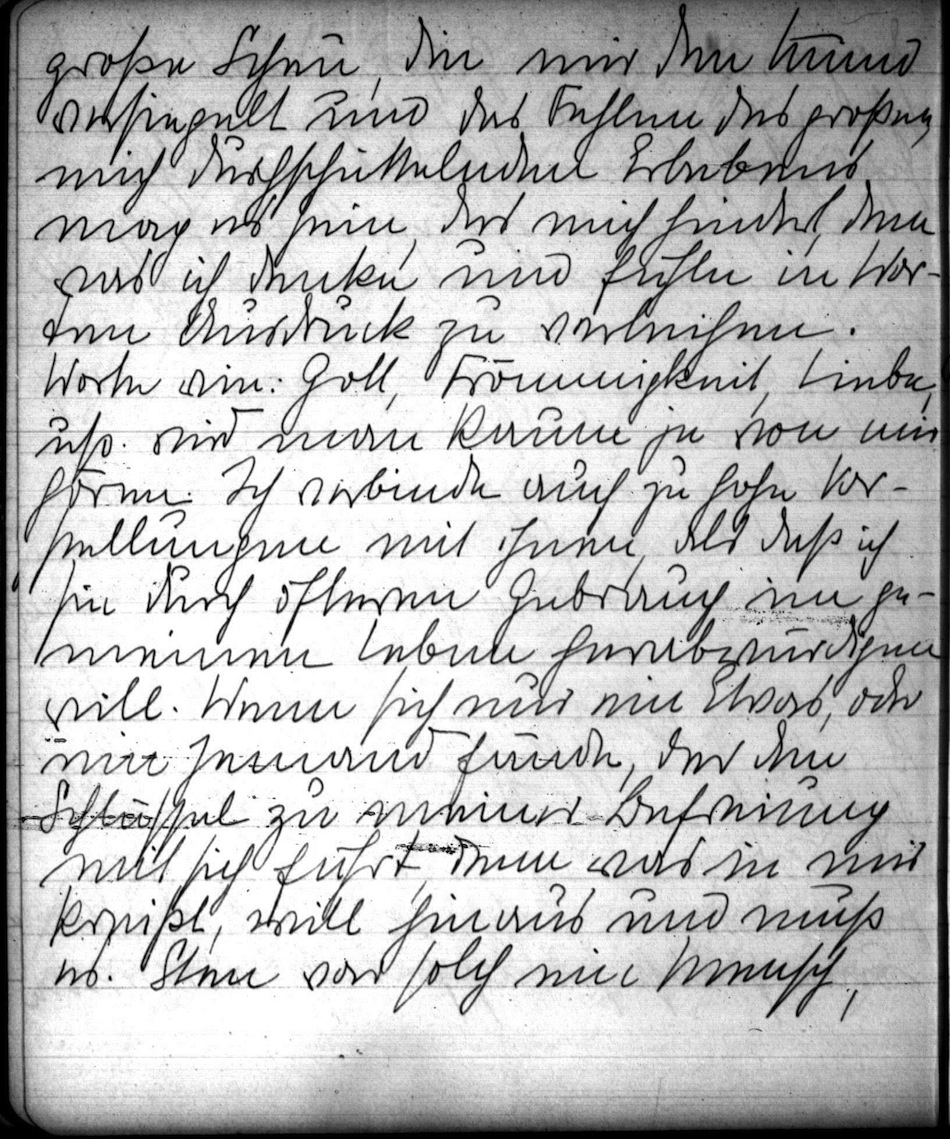 große Scheu, die mir den Mund
versiegelt und das Fehlen des großen,
mich durchschüttelnden Erlebens
mag es sein, das mich hindert, dem
was ich denke und fühle in Wor-
ten Ausdruck zu verleihen.
Worte wie: Gott, Frömmigkeit, Liebe,
usw. wird man kaum je von mir
hören. Ich verbinde auch zu hohe Vor-
stellungen mit ihnen, als daß ich
sie durch öfteren Gebrauch im ge-
meinen Leben herabwürdigen
will. Wenn sich nur ein Etwas, oder
ein Jemand fände, der den
Schlüssel zu meiner Befreiung
mit sich führt, denn was in mir
kreißt, will hinaus und muß
es. Sten war solch ein Mensch,